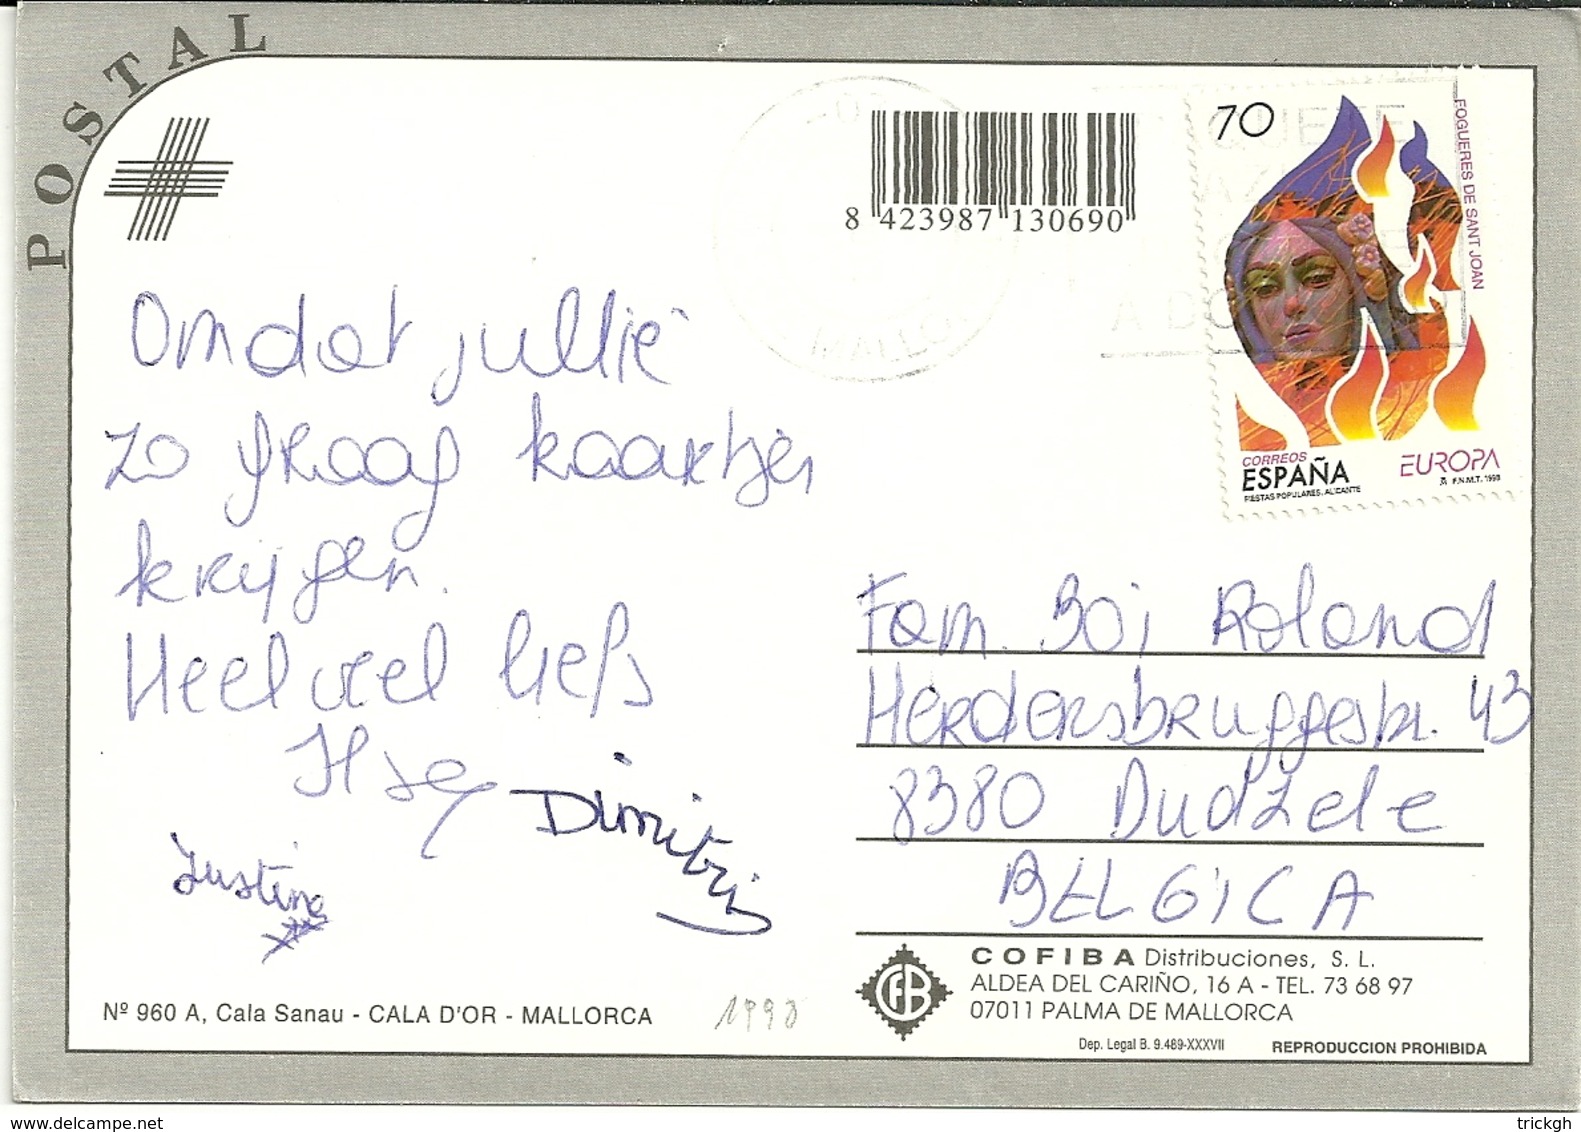 POSTAL
70
FOGUERES DE SANT JOAN
CORREOS
ESPAÑA
FIESTAS POPULARES. ALICANTE
EUROPA
F.N.M.T. 1998
8 423987 130690
MALLO
Omdat jullie
zo graag kaartjes
krijgen.
Heel veel liefs
Ilse
Dimitri
Justine
Fam. Boi Roland
Herdersbruggestr. 43
8380 Dudzele
BELGICA
COFIBA Distribuciones, S. L.
ALDEA DEL CARIÑO, 16 A - TEL. 73 68 97
07011 PALMA DE MALLORCA
Nº 960 A, Cala Sanau - CALA D'OR - MALLORCA
1998
Dep. Legal B. 9.489-XXXVII
REPRODUCCION PROHIBIDA
delcampe.net
trickgh